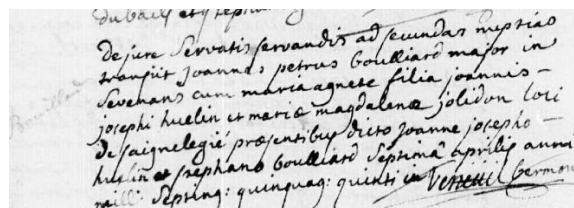 du bail et steph
de jure servatis servandis ad secundas nuptias
transiit joannes petrus boulliard major in
Sevenans cum maria agnete filia joannis
josephi huelin et mariæ magdalenæ jolidon loci
de saignelegié præsentibus dicto joanne josepho
huelin et stephano boulliard Septimâ aprilis anni
mill: Septing: quinquag: quinti